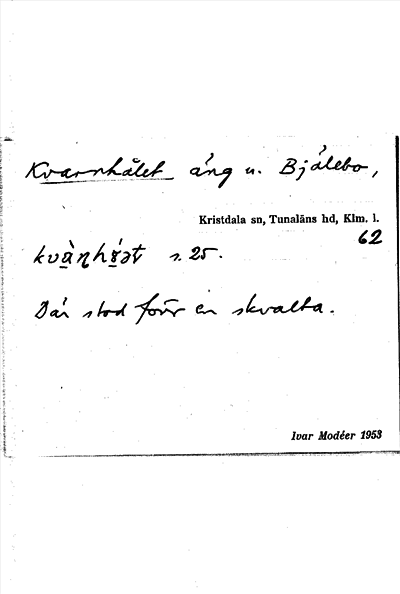 Kvarnhålet äng u. Bjälebo,
Kristdala sn, Tunaläns hd, Klm. l.
62
s. 25.
Där stod förr en skvalta.
Ivar Modéer 1953